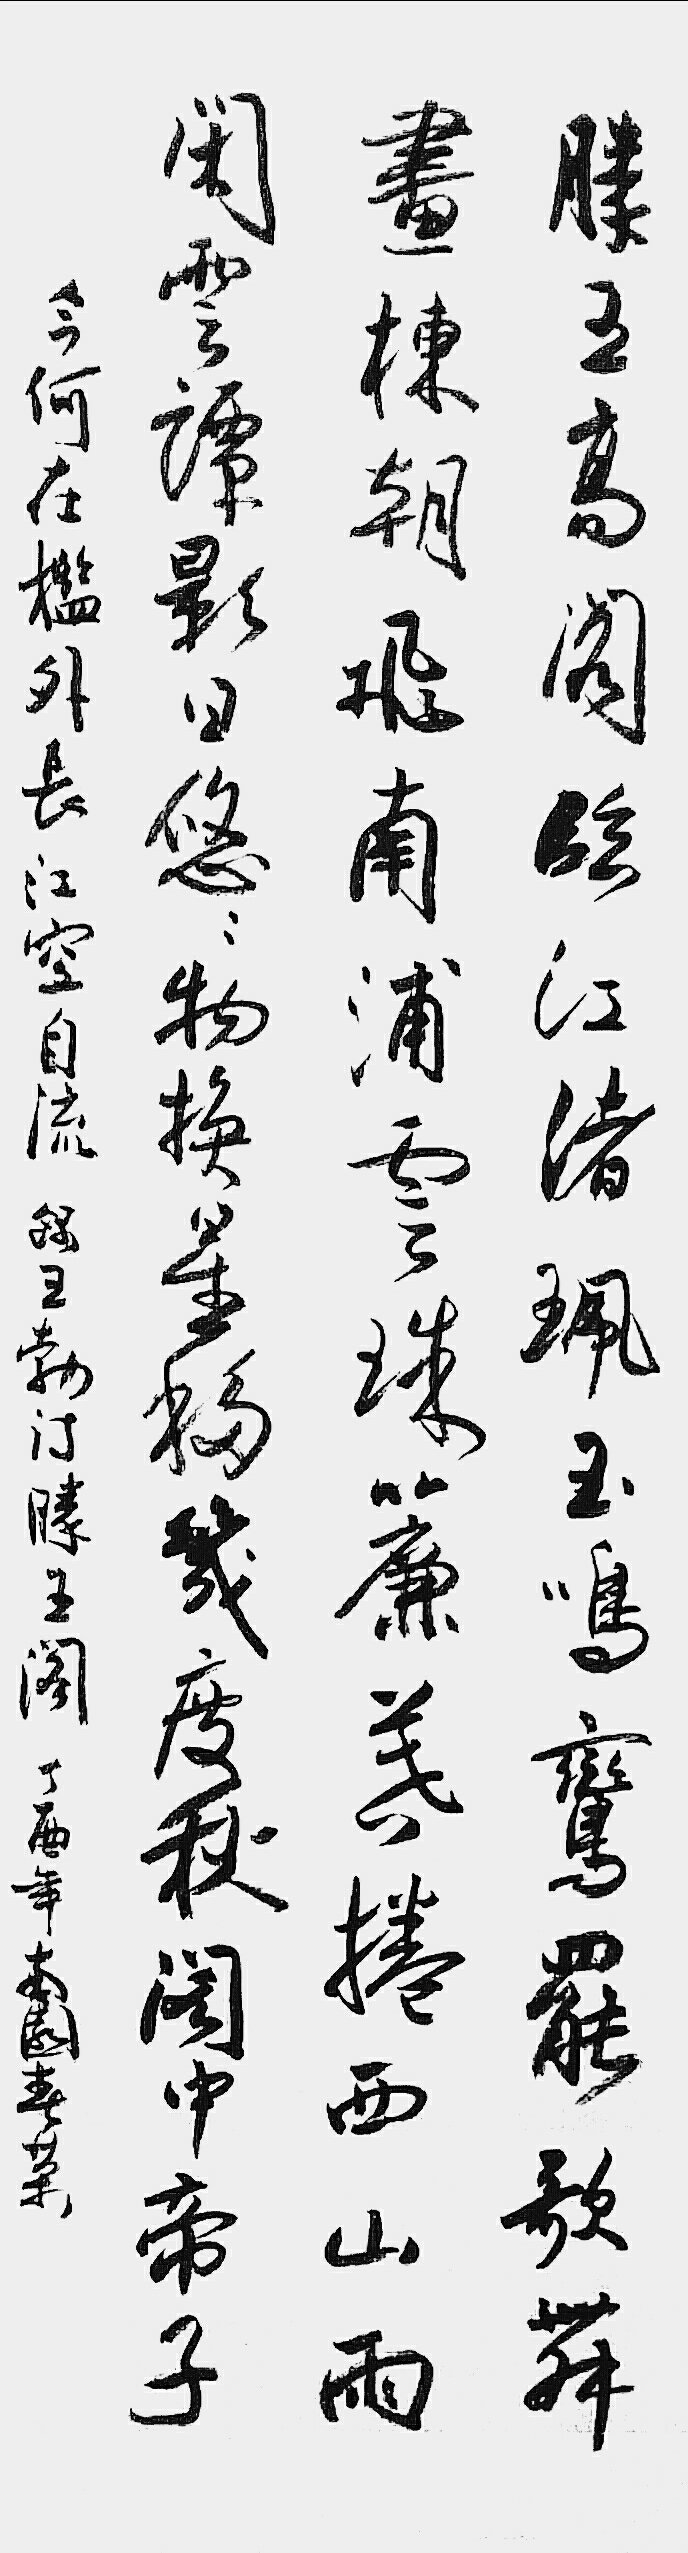 滕王高閣臨江渚珮玉鳴鸞罷歌舞
畫棟朝飛南浦雲珠簾暮捲西山雨
閑雲潭影日悠々物換星移幾度秋閣中帝子
今何在檻外長江空自流 錄王勃詩滕王閣 丁酉年 南園春